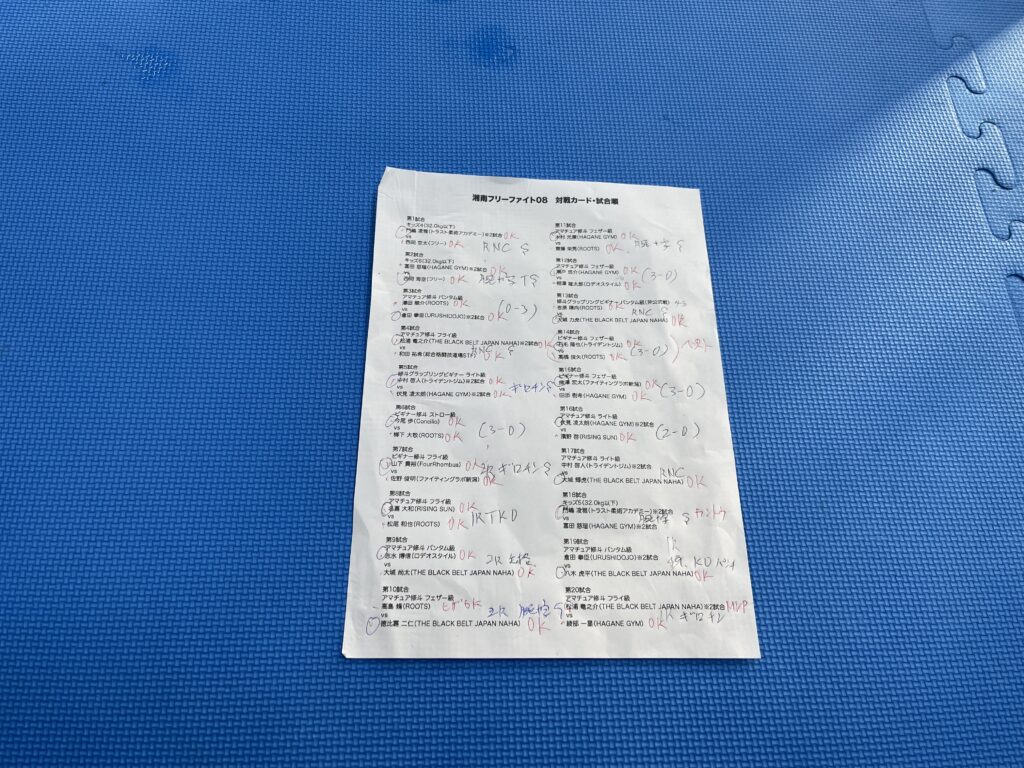 湘南フリーファイト08 対戦カード・試合順
第1試合
キッズ4(32.0kg以下)
門嶋 凌雅(トラスト柔術アカデミー)※2試合 OK
vs
西田 世太(フリー) OK RNC
第2試合
キッズ6(32.0kg以下)
冨田 慈瑠(HAGANE GYM)※2試合 OK
vs
西岡 (フリー) OK 腕十字
第3試合
アマチュア修斗 バンタム級
澤田 龍介(ROOTS) OK
vs (0-3)
倉田 拳臣(URUSHIDOJO)※2試合 OK
第4試合
アマチュア修斗 フライ級
松浦 竜之介(THE BLACK BELT JAPAN NAHA)※2試合 OK
vs RNC
和田 祐希(総合格闘技道場STF) OK
第5試合
修斗グラップリングビギナー ライト級
中村 啓人(トライデントジム)※2試合 OK
vs ギロチン
伏見 凌太朗(HAGANE GYM)※2試合 OK
第6試合
ビギナー修斗 ストロー級
今尾 歩(Concilio) OK
vs (3-0)
樺下 大牧(ROOTS) OK
第7試合
ビギナー修斗 フライ級
山下 貴裕(FourRhombus) OK ギロチン
vs
佐野 俊明(ファイティングラボ新潟) OK
第8試合
アマチュア修斗 フライ級
名嘉 大和(RISING SUN) OK
vs 1RTKO
松尾 和也(ROOTS) OK
第9試合
アマチュア修斗 バンタム級
志水 博信(ロデオスタイル) OK
vs 2R
大城 尚太(THE BLACK BELT JAPAN NAHA) OK
第10試合
アマチュア修斗 フェザー級
高島 脩(ROOTS) OK
vs 2R 腕十字
徳比嘉 二仁(THE BLACK BELT JAPAN NAHA) OK
第11試合
アマチュア修斗 フェザー級
木村 光廣(HAGANE GYM) OK
vs 腕十字
齋藤 栄亮(ROOTS) OK
第12試合
アマチュア修斗 フェザー級
瀬戸 悠介(HAGANE GYM) OK
vs (3-0)
根津 竜太郎(ロデオスタイル) OK
第13試合
修斗グラップリングビギナー バンタム級(非公式戦)
佐原 陽向(ROOTS) OK
vs RNC
大城 力虎(THE BLACK BELT JAPAN NAHA) OK
第14試合
ビギナー修斗 フェザー級
陽也(トライデントジム) OK
vs (3-0) ベスト
高橋 俊矢(ROOTS) OK
第15試合
ビギナー修斗 フェザー級
相澤 宏太(ファイティングラボ新潟) OK
vs (3-0)
田添 樹希(HAGANE GYM) OK
第16試合
アマチュア修斗 ライト級
伏見 凌太朗(HAGANE GYM)※2試合 OK
vs (2-0)
濱野 啓(RISING SUN) OK
第17試合
アマチュア修斗 ライト級
中村 啓人(トライデントジム)※2試合
vs RNC
大城 輝虎(THE BLACK BELT JAPAN NAHA) OK
第18試合
キッズ5(32.0kg以下)
門嶋 凌雅(トラスト柔術アカデミー)※2試合
vs
冨田 慈瑠(HAGANE GYM)※2試合
第19試合
アマチュア修斗 バンタム級
倉田 拳臣(URUSHIDOJO)※2試合
vs KO
八木 虎平(THE BLACK BELT JAPAN NAHA) OK
第20試合
アマチュア修斗 フライ級
松浦 竜之介(THE BLACK BELT JAPAN NAHA)※2試合 MVP
vs ギロチン
綾部 一星(HAGANE GYM) OK